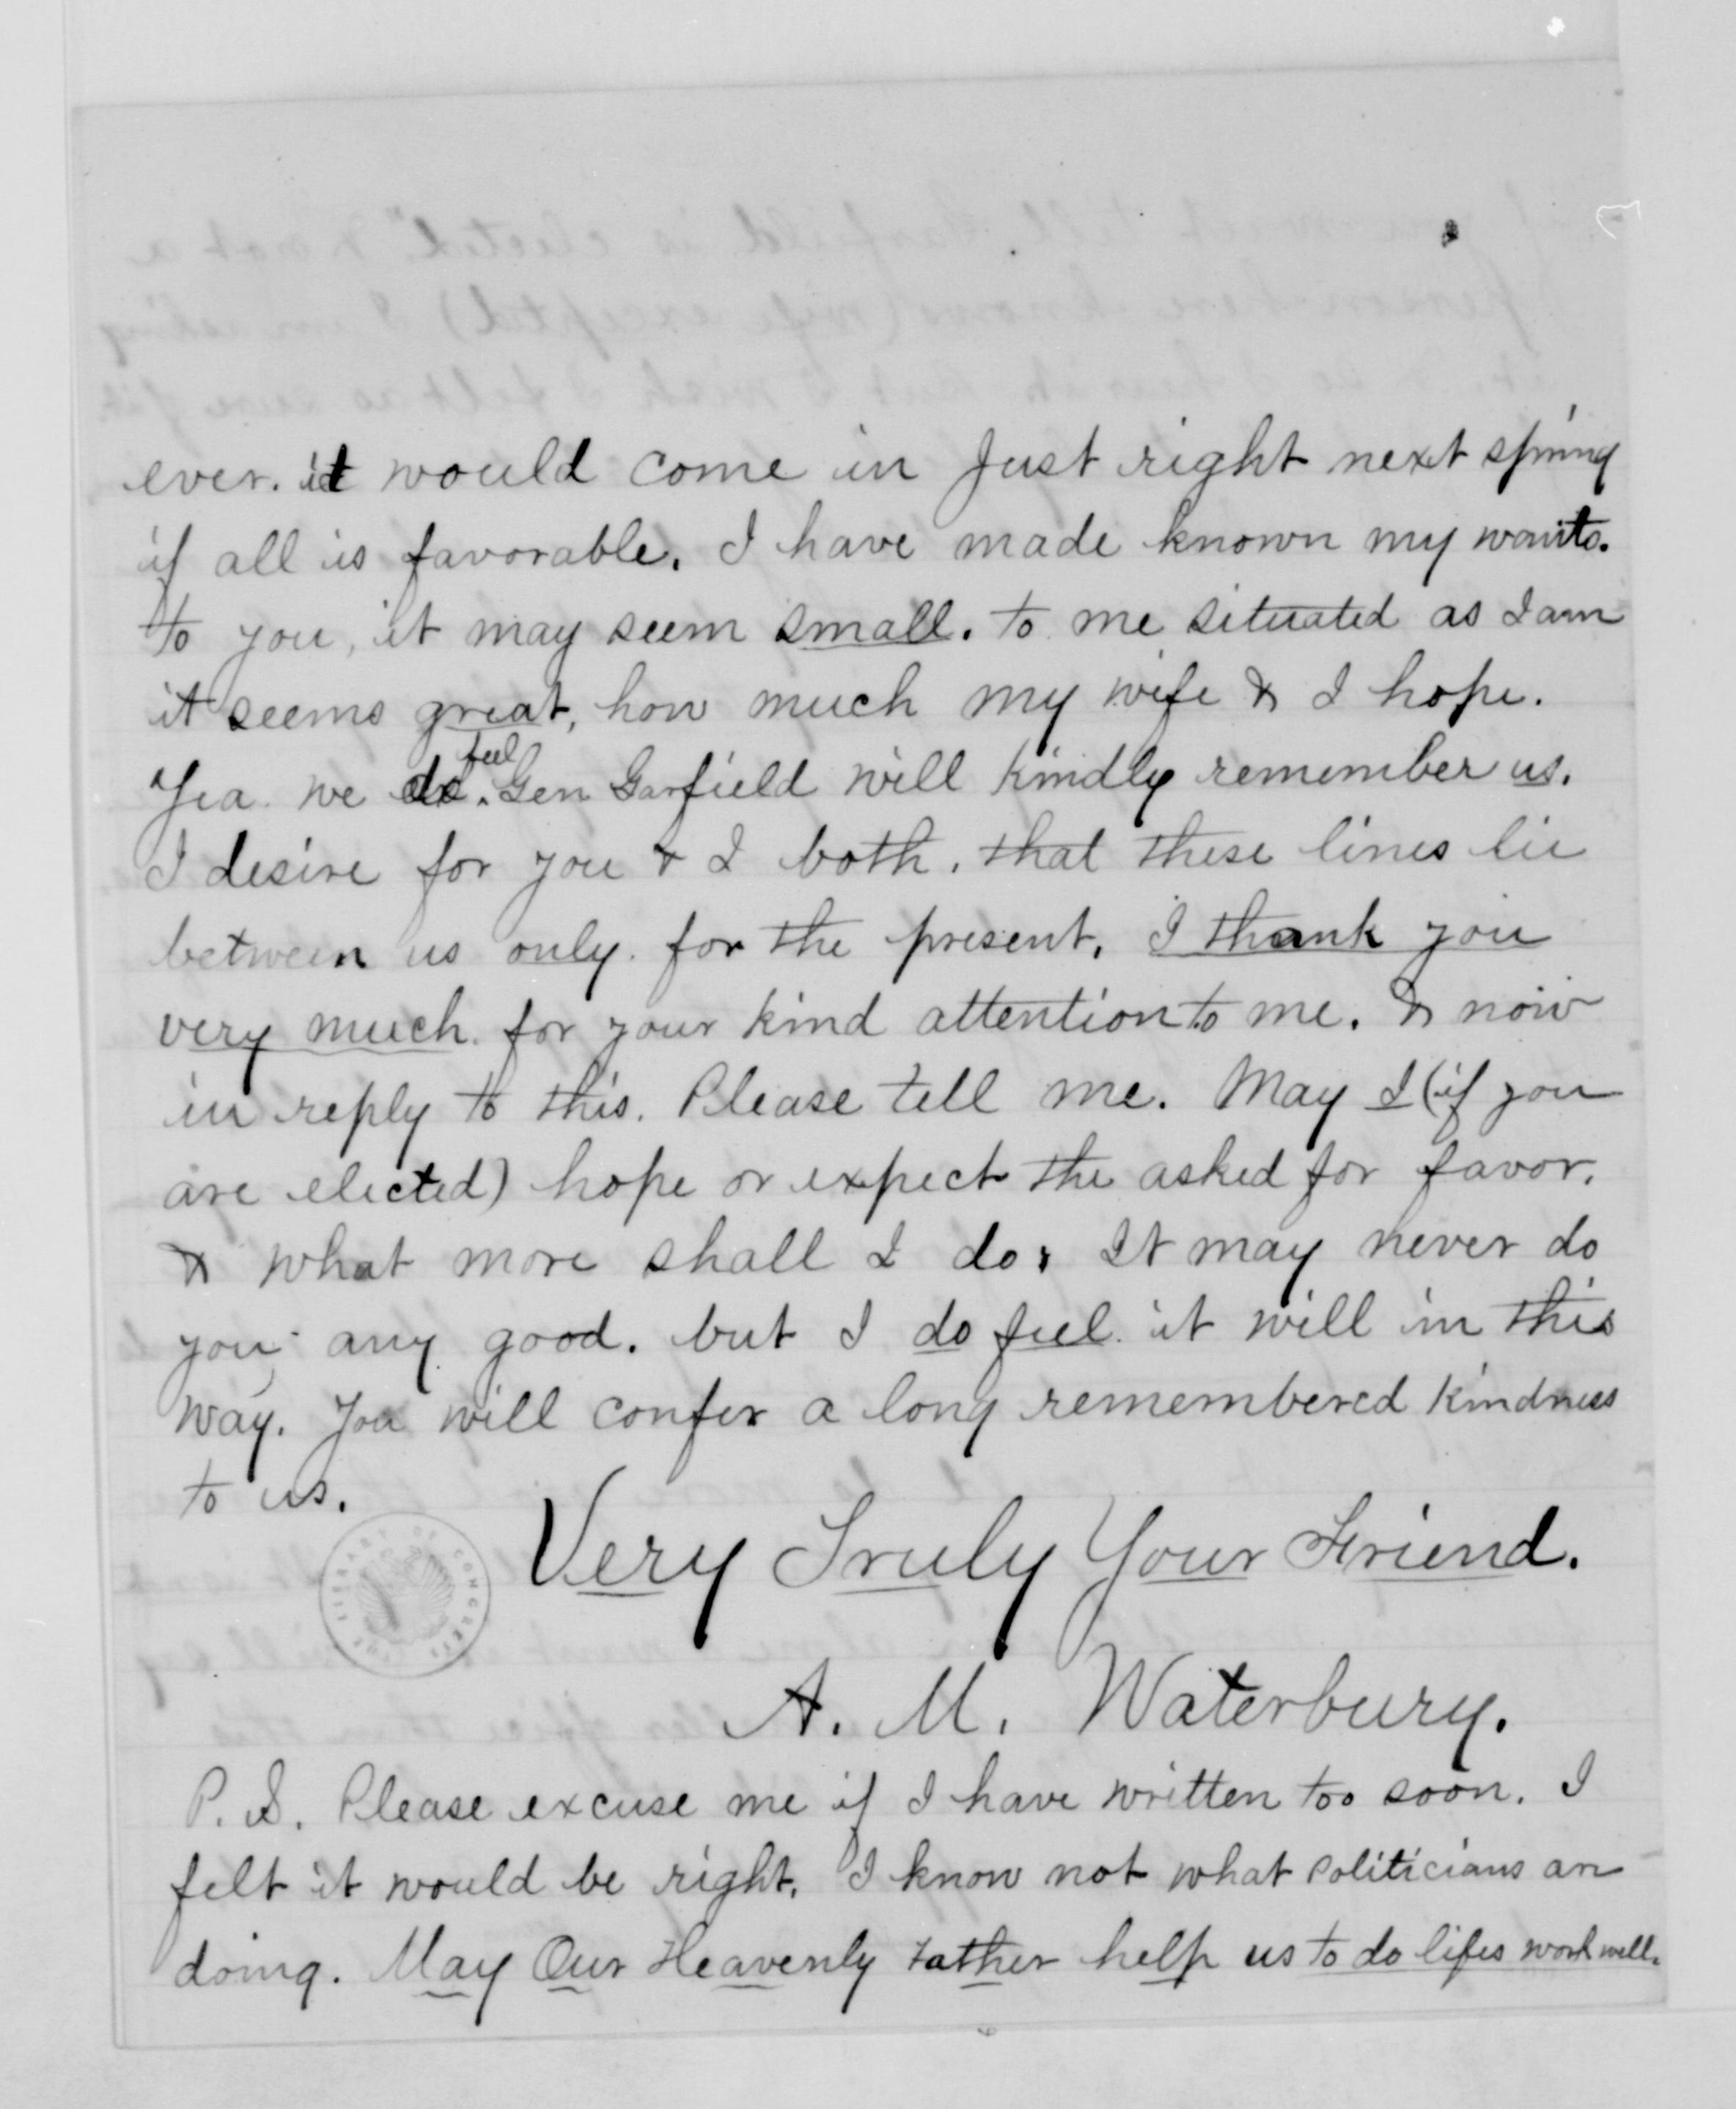 ever. it would come in Just right next spring
if all is favorable. I have made known my wants.
to you, it may seem small. to me situated as I am
it seems great, how much my wife & I hope.
feel
Yea we do. Gen Garfield will kindly remember us.
I desire for you & I both. that these lines lie
between us only. for the present. I thank you
very much. for your kind attention to me. & now
in reply to this. Please tell me. May I (if you
are elected) hope or expect the asked for favor.
& what more shall I do. It may never do
you any good. but I do feel it will in this
way. You will confer a long remembered kindness
to us.
Very Truly Your Friend.
THE LIBRARY OF CONGRESS
A. M. Waterbury.
P.S. Please excuse me if I have written too soon. I
felt it would be right. I know not what politicians are
doing. May Our Heavenly Father help us to do lifes work well.